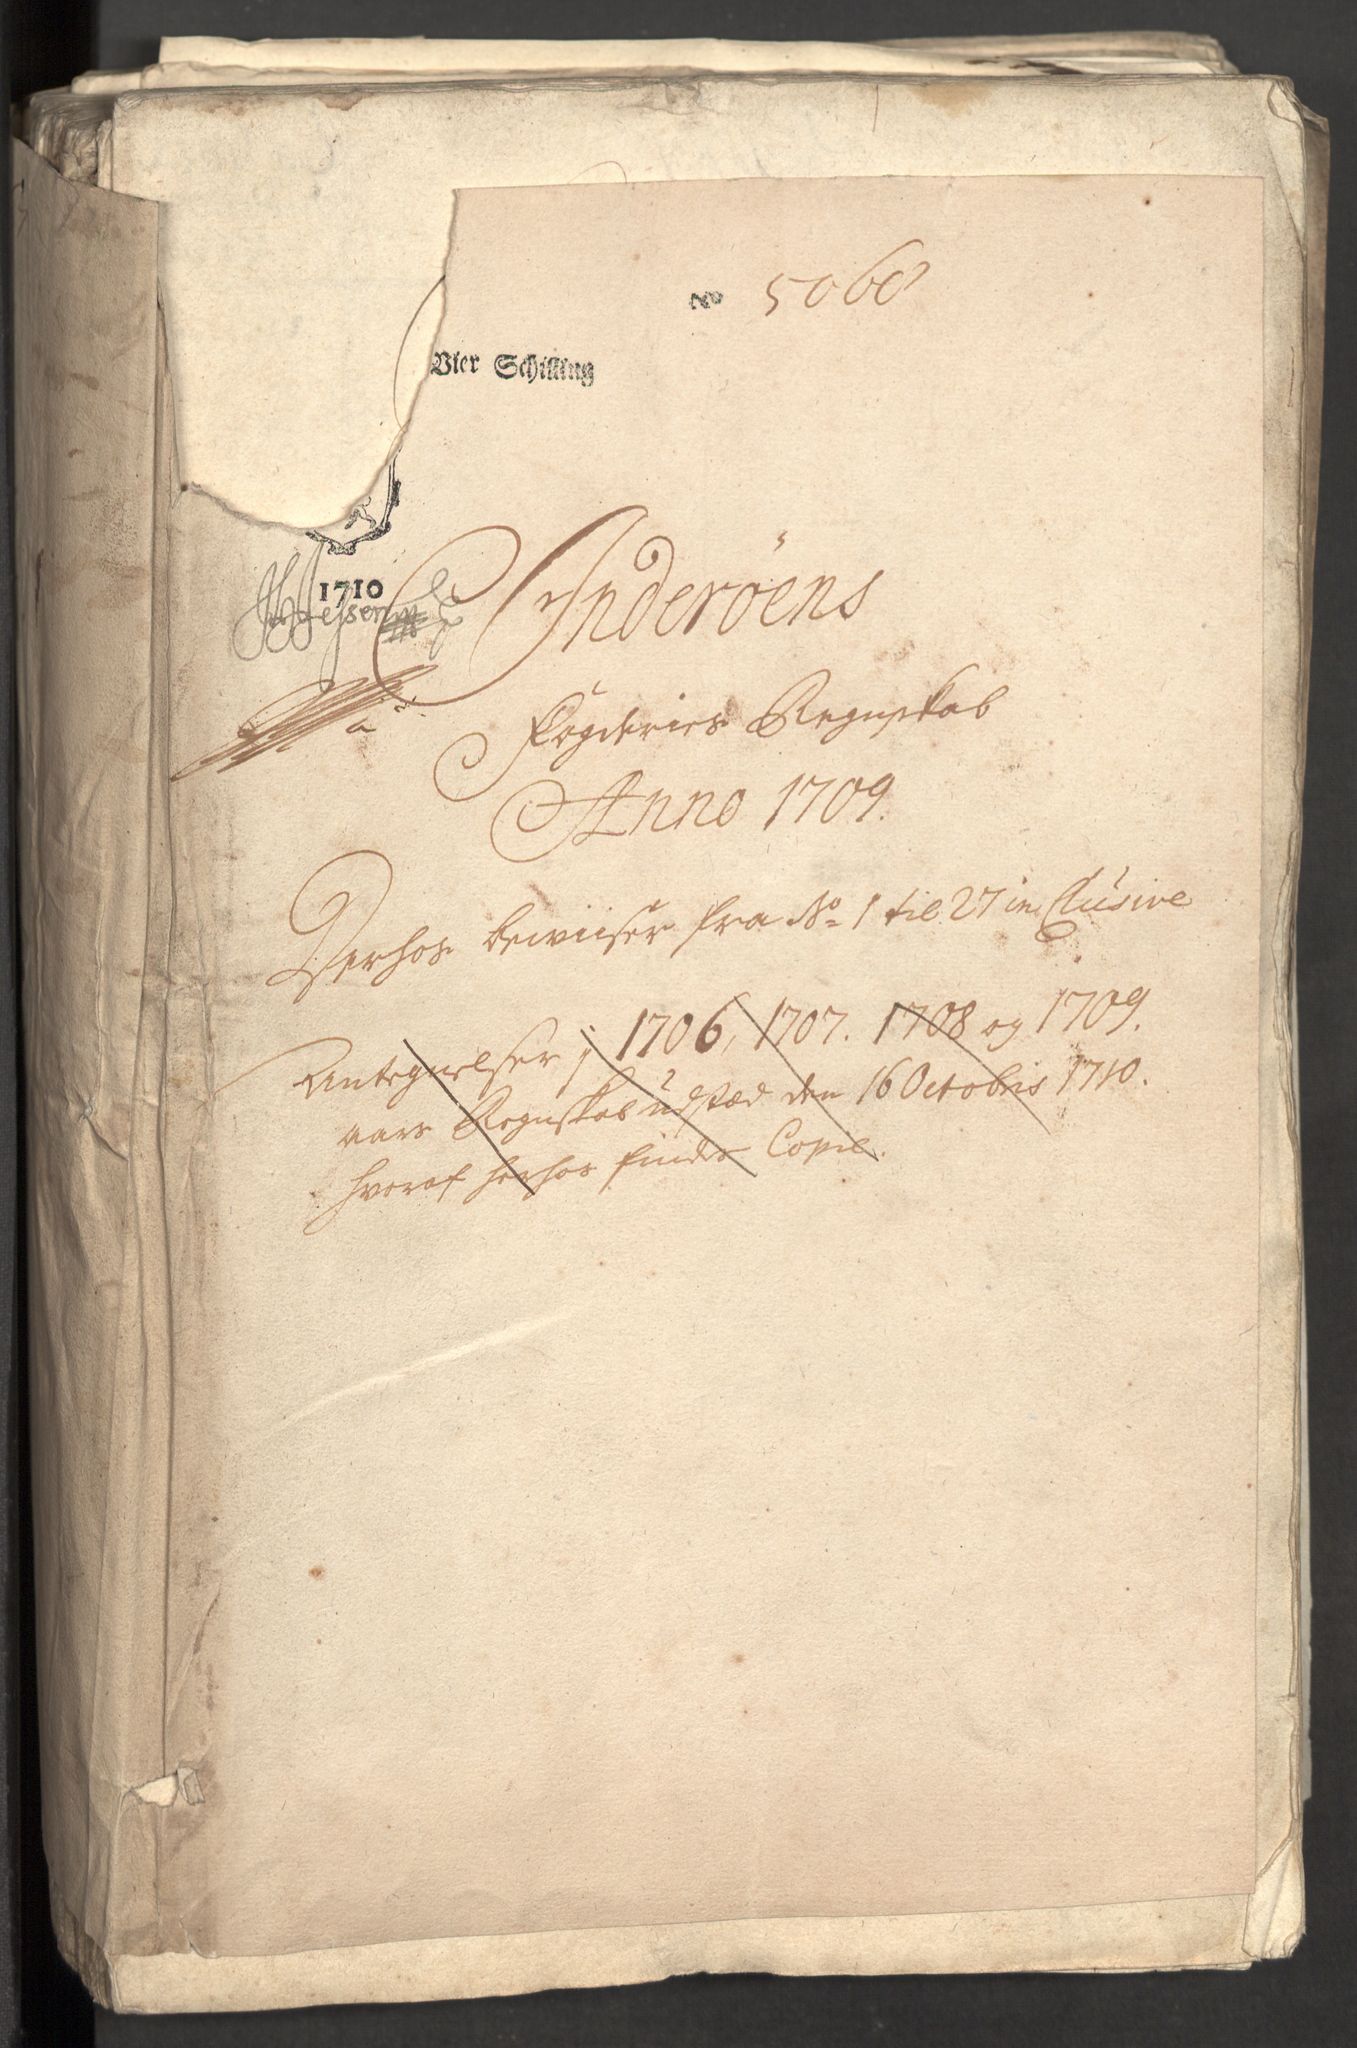 5060
Vier Schilling
1710
Inderöens
Fögderies Regnskab
Anno 1709.
Derhos bewiiser fra No 1 til 27 inClusive
Antegnelser j 1706, 1707. 1708 og 1709.
aars Regnskab udstæd den 16 Octobris 1710.
hvoraf herhos findes Copie.